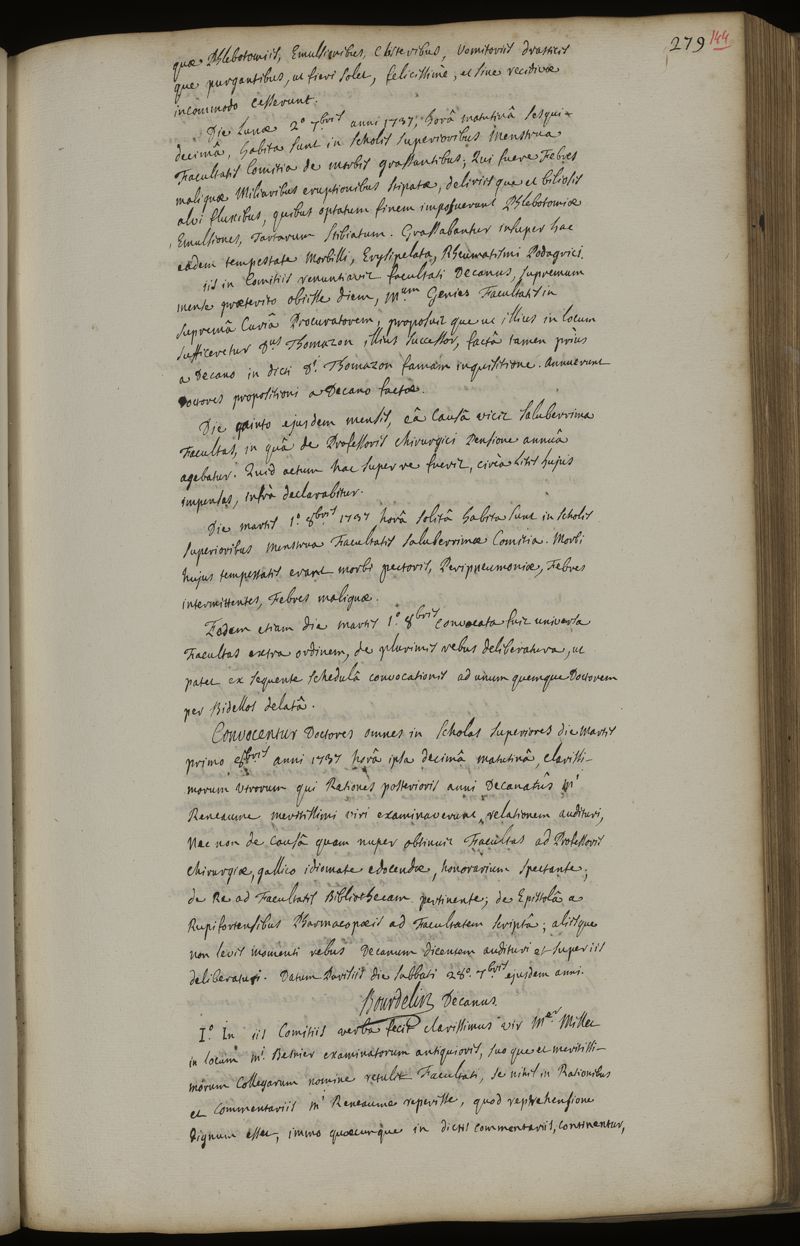 279 144
quæ Phlebotomiis, Emulsionibus, Clysteribus, Vomitoriis drasticis
que purgantibus, ut fieri solet, felicissime, et sine recidivæ
incommodo cesserunt.
Die Lunæ 2º 7bris anni 1737, horâ matutinâ sesqui-
decimâ, habita sunt in Scholis superioribus menstrua
Facultatis Comitia de morbis grassantibus; Qui fuere Febres
malignæ Miliaribus eruptionibus stipatæ, deliriis que et biliosis
alvi fluxibus, quibus optatum finem imposuerunt Phlebotomiæ
, Emulsiones, Tartarum Stibiatum. Grassabantur insuper hac
eadem tempestate Morbilli, Erysipelata, Rheumatismi Podagrici.
iis in Comitiis renuntiavit facultati Decanus, supremum
mense præterito obiisse diem, Mum Genies Facultatis in
supremâ Curiâ Procuratorem, proposuit que ut illius in locum
sufficeretur Dus Thomazon illius successor, factâ tamen priùs
a Decano in dicti Di Thomazon famam inquisitione. Annuerunt
Doctores propositioni a Decano factæ.
Die quinto ejusdem mensis, eâ Causâ vicit saluberrima
Facultas, in quâ de Professoris Chirurgici Pensione annuâ
agebatur. Quid actum hac super re fuerit, circà Litis hujus
impensas, infrà declarabitur.
Die martis 1º 8bris 1737 horâ solitâ habita sunt in scholis
superioribus menstrua Facultatis saluberrimæ Comitia. Morbi
hujus tempestatis erant morbi pectoris, Peripneumoniæ, Febres
intermittentes, Febres malignæ.
Eodem etiam die martis 1º 8bris convocata fuit universa
Facultas extra ordinem, de plurimis rebus deliberatura, ut
patet ex sequente schedulâ convocationis ad unum quemque Doctorem
per Bidellos delatâ.
Convocentur Doctores omnes in Scholas superiores die Martis
primo 8bris anni 1737 horâ ipsa decimâ matutinâ, clarissi-
morum virorum qui Rationes posterioris anni Decanatûs Mi
Reneaume meritissimi viri examinaverunt, relationem audituri,
Nec non de causâ quam nuper obtinuit Facultas ad Professoris
Chirurgiæ, gallico idiomate edocendæ, honorarium spectante;
de Re ad Facultatis Bibliothecam pertinente; de Epistolâ a
Rupifortensibus Pharmacopæis ad Facultatem scriptâ; aliisque
non levis momenti rebus Decanum dicentem audituri et super iis
deliberaturi. Datum Parisiis die sabbati 28º 7bris ejusdem anni.
Bourdelin Decanus
Iº In iis Comitiis verba fecit clarissimus vir Mer Millet
in locum Mi Besnier examinatorum antiquioris, suo que et meritissi-
morum Collegarum nomine retulit Facultati, se nihil in Rationibus
et Commentariis Mi Reneaume reperisse, quod reprehensione
dignum esset, immo quæcunque in dictis commentariis, continentur,